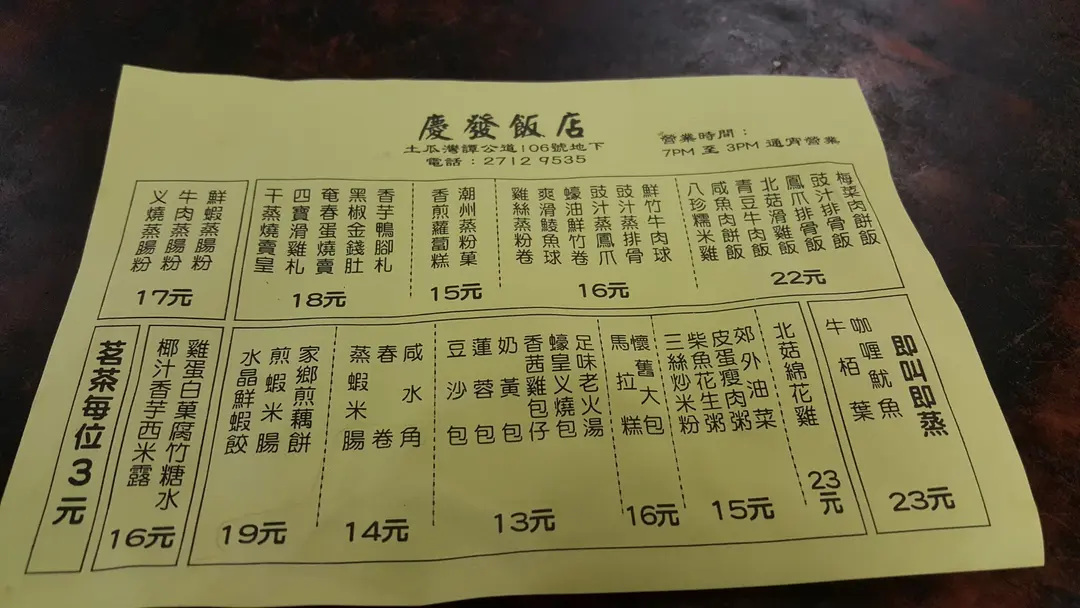 慶發飯店
土瓜灣譚公道106號地下
電話：2712 9535
營業時間：
7PM 至 3PM 通宵營業
梅菜肉餅飯
豉汁排骨飯
鳳爪排骨飯
北菇滑雞飯
青豆牛肉飯
咸魚肉餅飯
八珍糯米雞
22元
鮮竹牛肉球
豉汁蒸排骨
豉汁蒸鳳爪
蠔油鮮竹卷
爽滑鯪魚球
雞絲蒸粉卷
16元
潮州蒸粉菓
香煎蘿蔔糕
15元
香芋鴨腳札
黑椒金錢肚
奄春蛋燒賣
四寶滑雞札
干蒸燒賣皇
18元
鮮蝦蒸腸粉
牛肉蒸腸粉
义燒蒸腸粉
17元
即叫即蒸
咖喱魷魚
牛栢葉
23元
北菇綿花雞
23元
郊外油菜
皮蛋瘦肉粥
柴魚花生粥
三絲炒米粉
15元
懷舊大包
馬拉糕
16元
足味老火湯
蠔皇义燒包
香茜雞包仔
奶黃包
蓮蓉包
豆沙包
13元
咸水角
春卷
蒸蝦米腸
14元
家鄉煎藕餅
煎蝦米腸
水晶鮮蝦餃
19元
雞蛋白菓腐竹糖水
椰汁香芋西米露
16元
茗茶每位3元